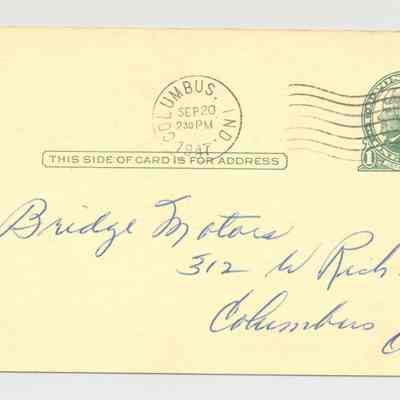 COLUMBUS, IND.
SEP 20
2 30 PM
1947
1
THIS SIDE OF CARD IS FOR ADDRESS
Bridge Motors
312 W Rich
Columbus